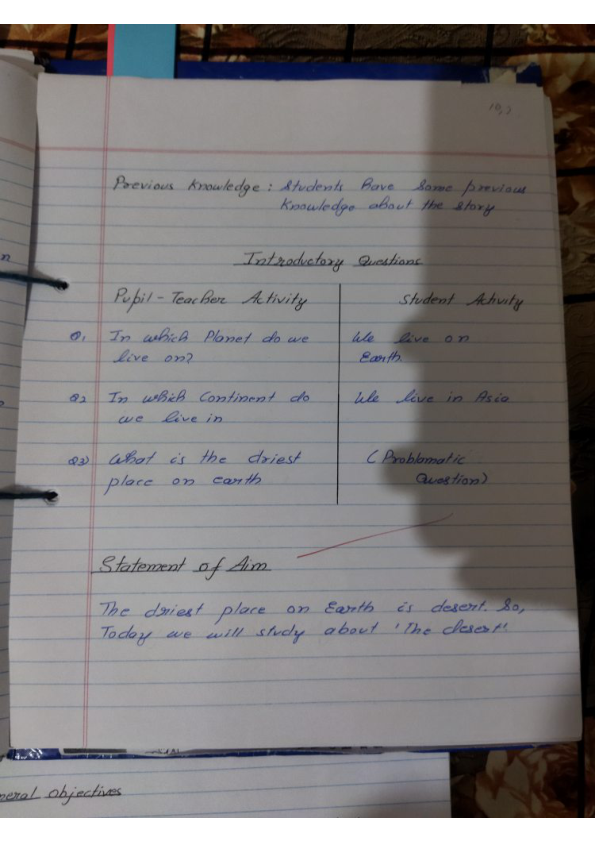 Previous Knowledge : Students have some previous
Knowledge about the story
Introductory Questions
Pupil-Teacher Activity
Student Activity
Q1 In which Planet do we
live on?
We live on
Earth.
Q2 In which Continent do
we live in
We live in Asia
Q3) What is the driest
place on earth
(Problamatic
Question)
Statement of Aim
The driest place on Earth is desert. So,
Today we will study about 'The desert'.
neral objectives